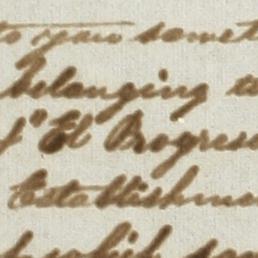 to your somet
belonging to
f "El Progres
Establishm
which